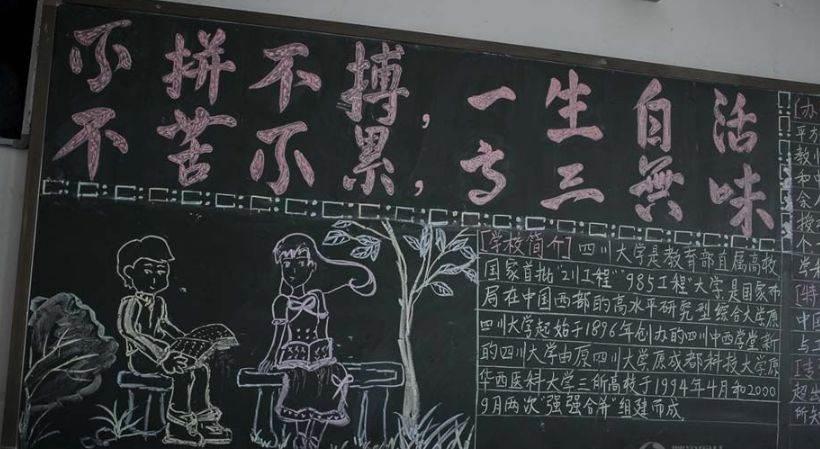 不拼不搏,一生自活
不苦不累,高三無味
[学校简介]四川大学是教育部直属高校
国家首批"211工程""985工程"大学是国家布
局在中国西部的高水平研究型综合大学原
四川大学起始于1896年创办的四川中西学堂新
的四川大学由原四川大学原成都科技大学原
华西医科大学三所高校于1994年4月和2000
9月两次"强强合并"组建而成
[办
平方
教师
和中
会
授
个
学科
[特
中国
与
超出
所知